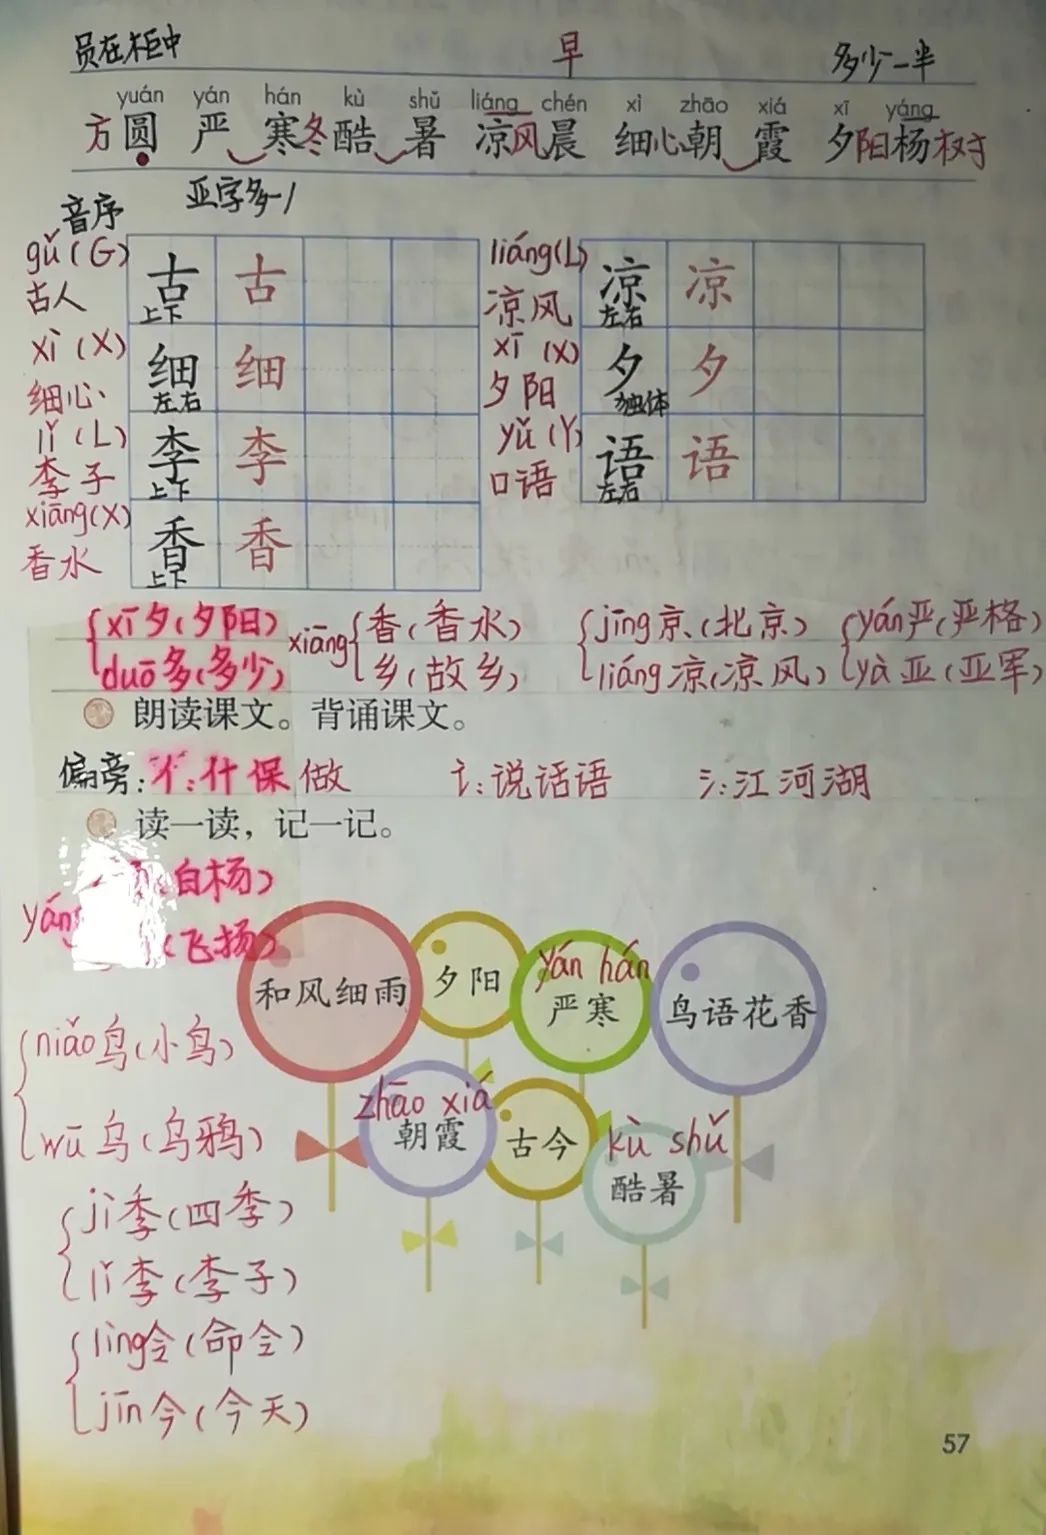 员在框中 早 多少一半
yuán yán hán kù shǔ liáng chén xì zhāo xiá xī yáng
方圆 严 寒冬酷 暑 凉风晨 细心朝 霞 夕阳杨树
亚字多一丿
音序
gǔ(G) 古 古 liáng(L) 凉 凉
古人 上下 凉风 左右
xì(X) 细 细 xī(X) 夕 夕
细心 左右 夕阳 独体
lǐ(L) 李 李 yǔ(Y) 语 语
李子 上下 口语 左右
xiāng(X) 香 香
香水 上下
xī夕(夕阳) xiāng 香(香水) jīng京(北京) yán严(严格)
duō多(多少) 乡(故乡) liáng凉(凉风) yà亚(亚军)
朗读课文。背诵课文。
偏旁:亻:什保做 讠:说话语 氵:江河湖
读一读，记一记。
白杨)
yáng
(飞扬)
和风细雨 夕阳 yán hán 严寒 鸟语花香
niǎo鸟(小鸟)
zhāo xiá 朝霞 古今 kù shǔ 酷暑
wū乌(乌鸦)
jì季(四季)
lǐ李(李子)
lìng令(命令)
jīn今(今天)
57